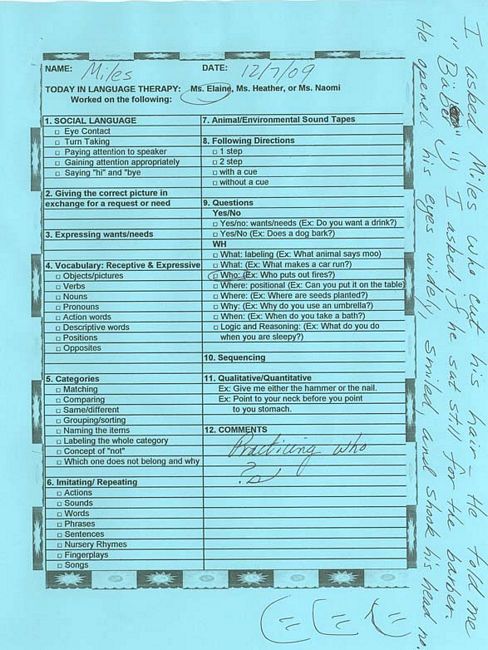 NAME: Miles DATE: 12/7/09
TODAY IN LANGUAGE THERAPY: Ms. Elaine, Ms. Heather, or Ms. Naomi
Worked on the following:
1. SOCIAL LANGUAGE
Eye Contact
Turn Taking
Paying attention to speaker
Gaining attention appropriately
Saying "hi" and "bye
2. Giving the correct picture in
exchange for a request or need
3. Expressing wants/needs
4. Vocabulary: Receptive & Expressive
Objects/pictures
Verbs
Nouns
Pronouns
Action words
Descriptive words
Positions
Opposites
5. Categories
Matching
Comparing
Same/different
Grouping/sorting
Naming the items
Labeling the whole category
Concept of "not"
Which one does not belong and why
6. Imitating/ Repeating
Actions
Sounds
Words
Phrases
Sentences
Nursery Rhymes
Fingerplays
Songs
7. Animal/Environmental Sound Tapes
8. Following Directions
1 step
2 step
with a cue
without a cue
9. Questions
Yes/No
Yes/no: wants/needs (Ex: Do you want a drink?)
Yes/No (Ex: Does a dog bark?)
WH
What: labeling (Ex: What animal says moo)
What: (Ex: What makes a car run?)
Who: (Ex: Who puts out fires?)
Where: positional (Ex: Can you put it on the table)
Where: (Ex: Where are seeds planted?)
Why: (Ex: Why do you use an umbrella?)
When: (Ex: When do you take a bath?)
Logic and Reasoning: (Ex: What do you do
when you are sleepy?)
10. Sequencing
11. Qualitative/Quantitative
Ex: Give me either the hammer or the nail.
Ex: Point to your neck before you point
to you stomach.
12. COMMENTS
Practicing who
?s
I asked Miles who cut his hair - He told me
" I asked if he sat still for the barber.
He opened his eyes widely, smiled and shook his head no.